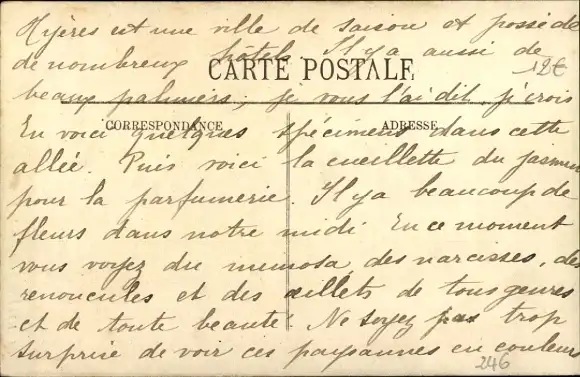 Hyères est une ville de saison et possède
de nombreux hôtel. Il y a aussi de
12€
CARTE POSTALE
beaux palmiers, je vous l'ai dit, je crois
CORRESPONDANCE
ADRESSE
En voici quelques spécimens dans cette
allée. Puis voici la cueillette du jasmin
pour la parfumerie. Il y a beaucoup de
fleurs dans notre midi. En ce moment
vous voyez du mimosa, des narcisses, des
renoncules et des œillets de tous genres
et de toute beauté. Ne soyez pas trop
surprise de voir ces paysannes en couleurs
246